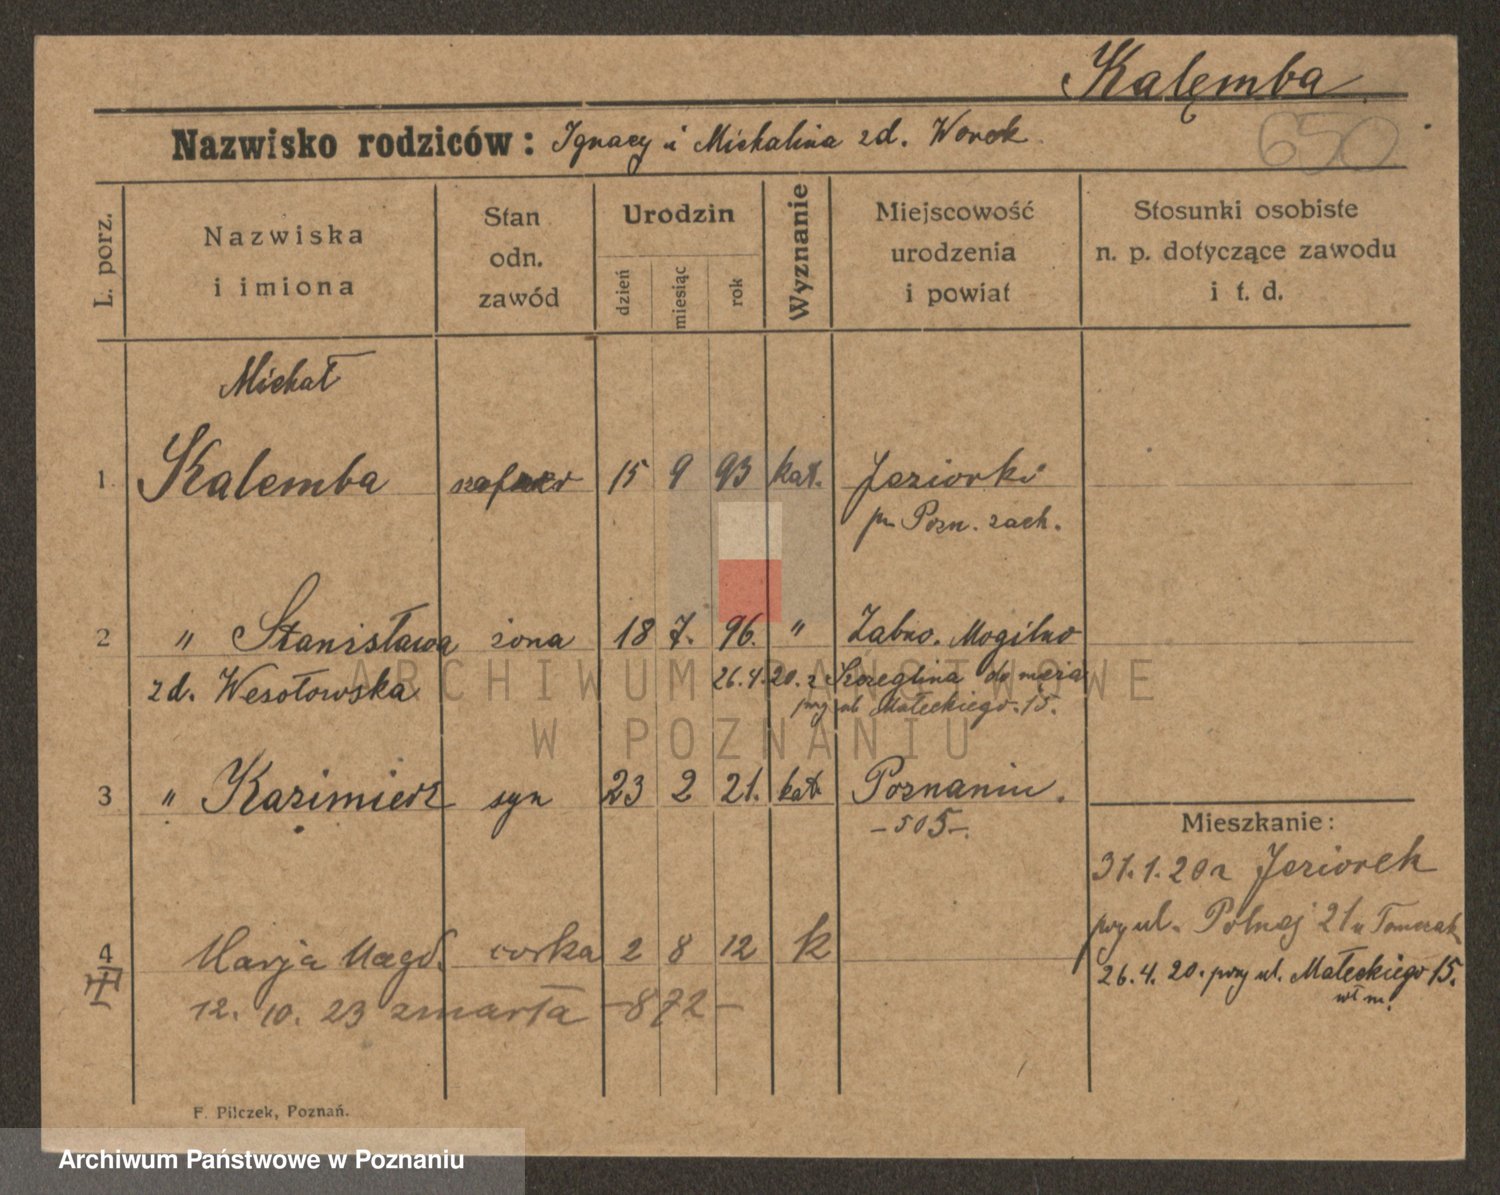 Kalęmba
650
Nazwisko rodziców: Ignacy i Michalina zd. Worek
L. porz.
Nazwiska i imiona
Stan odn. zawód
Urodzin
dzień
miesiąc
rok
Wyznanie
Miejscowość urodzenia i powiat
Stosunki osobiste n. p. dotyczące zawodu i t. d.
Michał
1. Kalemba 15 9 93 kat. Jeziorki
p. Pozn. zach.
2 " Stanisława żona 18 7. 96. " Żabno. Mogilno
zd. Wesołowska 26.4.20. z do męża
przy ul Małeckiego. 15.
ARCHIWUM PAŃSTWOWE
W POZNANIU
3 " Kazimierz syn 23 2 21. kat. Poznaniu.
-505-.
Mieszkanie:
31.1.20 z Jeziorek
przy ul. Polnej 21 u Tomczak
26.4.20. przy ul. Małeckiego 15.
wł m.
4 Marja Magd. corka 2 8 12 k
12. 10. 23 zmarła -872-
F. Pilczek, Poznań.
Archiwum Państwowe w Poznaniu